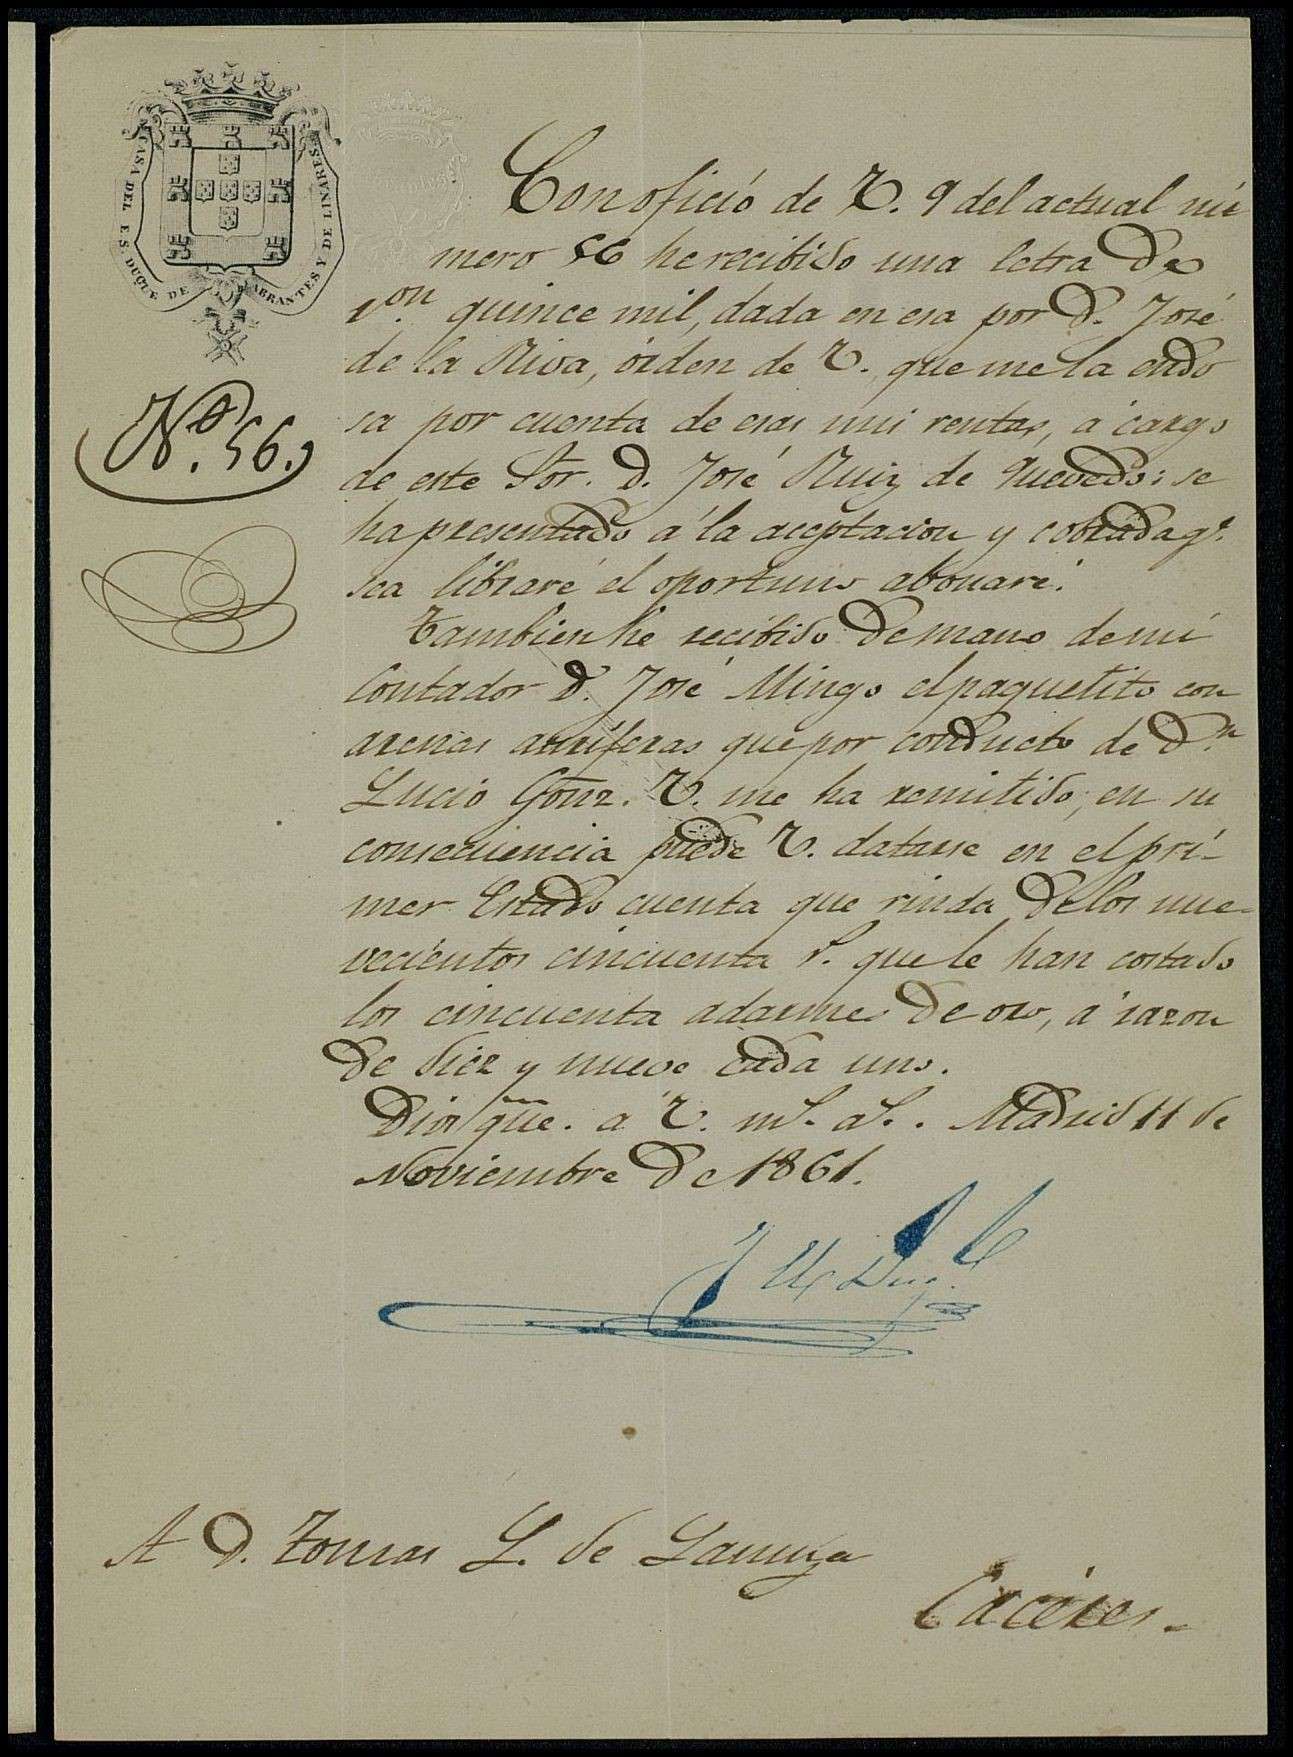 CASA DEL E.S. DUQUE DE ABRANTES Y DE LINARES
Nº. 56.
Con ofició de V. 9 del actual nú
mero 56 he recibido una letra de
von. quince mil, dada en esa por D. José
de la Riva, órden de V. que me la endo
sa por cuenta de esas mis rentas, á cargo
de este Sor. D. José Ruiz de Quevedo; se
ha presentado á la aceptacion y cobrada qe.
sea libraré el oportuno abonaré.
Tambien he recibido de mano de mi
Contador D. José Mingo el paquetito con
arenas auríferas que por conducto de Dn
Lucio Gonz. V. me ha remitido; en su
consecuencia puede V. datarse en el pri-
mer Estado cuenta que rinda de los nue-
vecientos cincuenta r. que le han costado
los cincuenta adarmes de oro, á razon
de diez y nueve cada uno.
Dios gue. a V. ms. as. Madrid 11 de
Noviembre de 1861.
A D. Tomas L. de Lanuza
Cáceres.